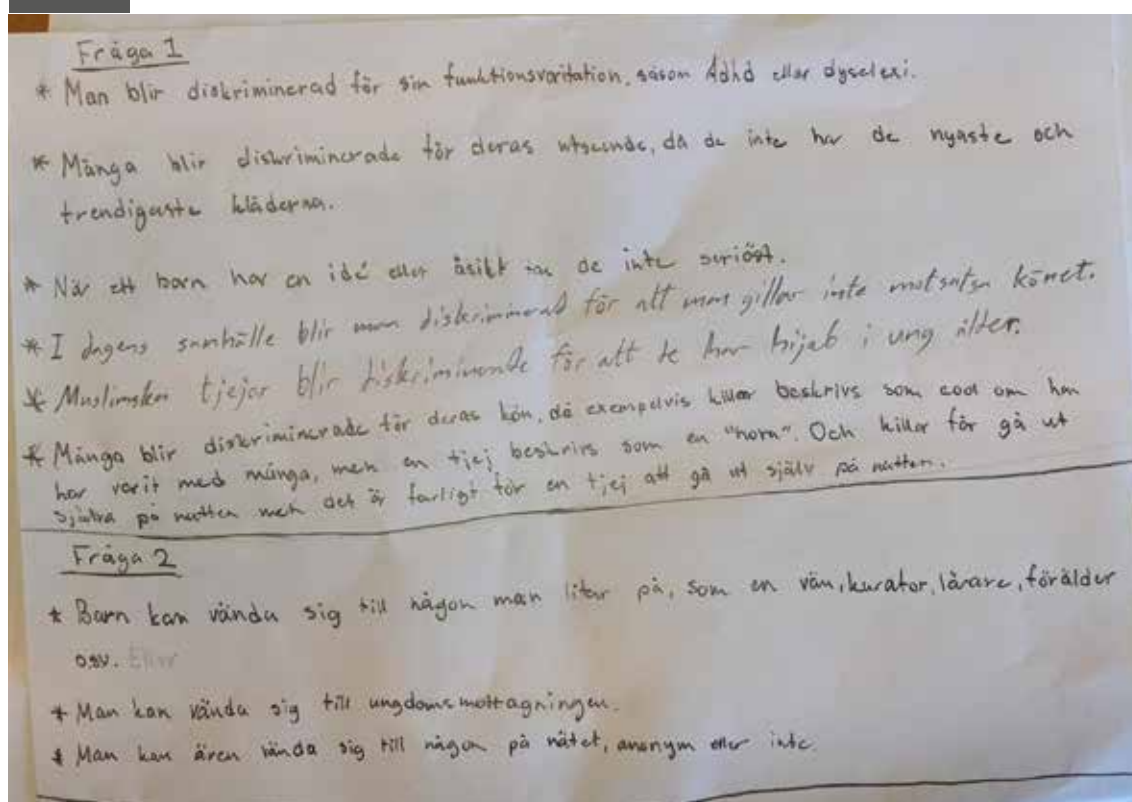 Fråga 1
* Man blir diskriminerad för sin funktionsvaritation, såsom Adhd eller dyselexi.
* Många blir diskriminerade för deras utseende, då de inte har de nyaste och
trendigaste kläderna.
* När ett barn har en idé eller åsikt tas de inte seriöst.
* I dagens samhälle blir man diskriminerad för att man gillar inte motsatsa könet.
* Muslimska tjejor blir diskriminerande för att de har hijab i ung ålder.
* Många blir diskriminerade för deras kön, då exempelvis killar beskrivs som cool om han
har varit med många, men en tjej beskrivs som en "hora". Och killar får gå ut
själva på natten men det är farligt för en tjej att gå ut själv på natten.
Fråga 2
* Barn kan vända sig till någon man litar på, som en vän, kurator, lärare, förälder
osv. Eller
* Man kan vända sig till ungdomsmottagningen.
* Man kan även vända sig till någon på nätet, anonym eller inte.